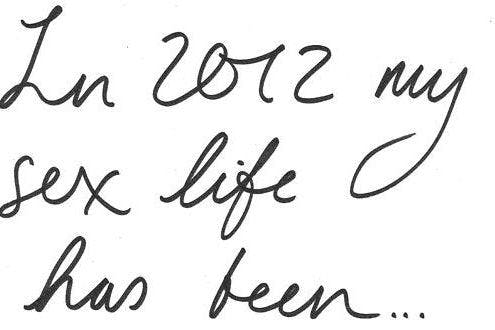 In 2012 my
sex life
has been...